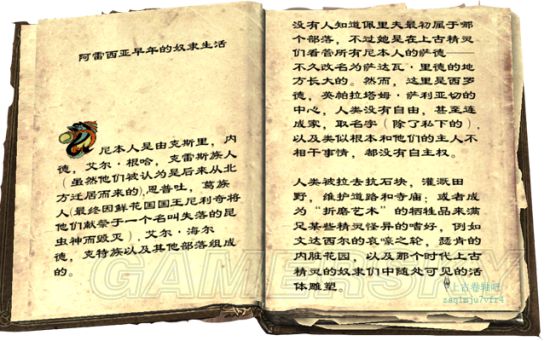 阿雷西亚早年的奴隶生活
尼本人是由克斯里，内
德，艾尔·根哈，克雷斯族人
（虽然他们被认为是后来从北
方迁居而来的),恩普吐，葛族
人(最终因鲜花国国王尼利奇将
他们献祭于一个名叫失落的昆
虫神而毁灭），艾尔·海尔
德，克特族以及其他部落组成
的。
没有人知道佩里夫最初属于哪
个部落，不过她是在上古精灵
们看管所有尼本人的萨德——
不久改名为萨达瓦·里德的地
方长大的。然而，这里是西罗
德，英帕拉塔姆·萨利亚切的
中心，人类没有自由，甚至连
成家，取名字（除了私下的），
以及类似根本和他们的主人不
相干事情，都没有自主权。
人类被拉去抗石块，灌溉田
野，维护道路和寺庙；或者成
为“折磨艺术”的牺牲品来满
足某些精灵怪异的嗜好，例如
文达西尔的哀嚎之轮，瑟肯的
内脏花园，以及那个时代上古
精灵的奴隶们中随处可见的活
体雕塑。
上古卷轴吧
zaq1mju7vfr4
GAMERSKY